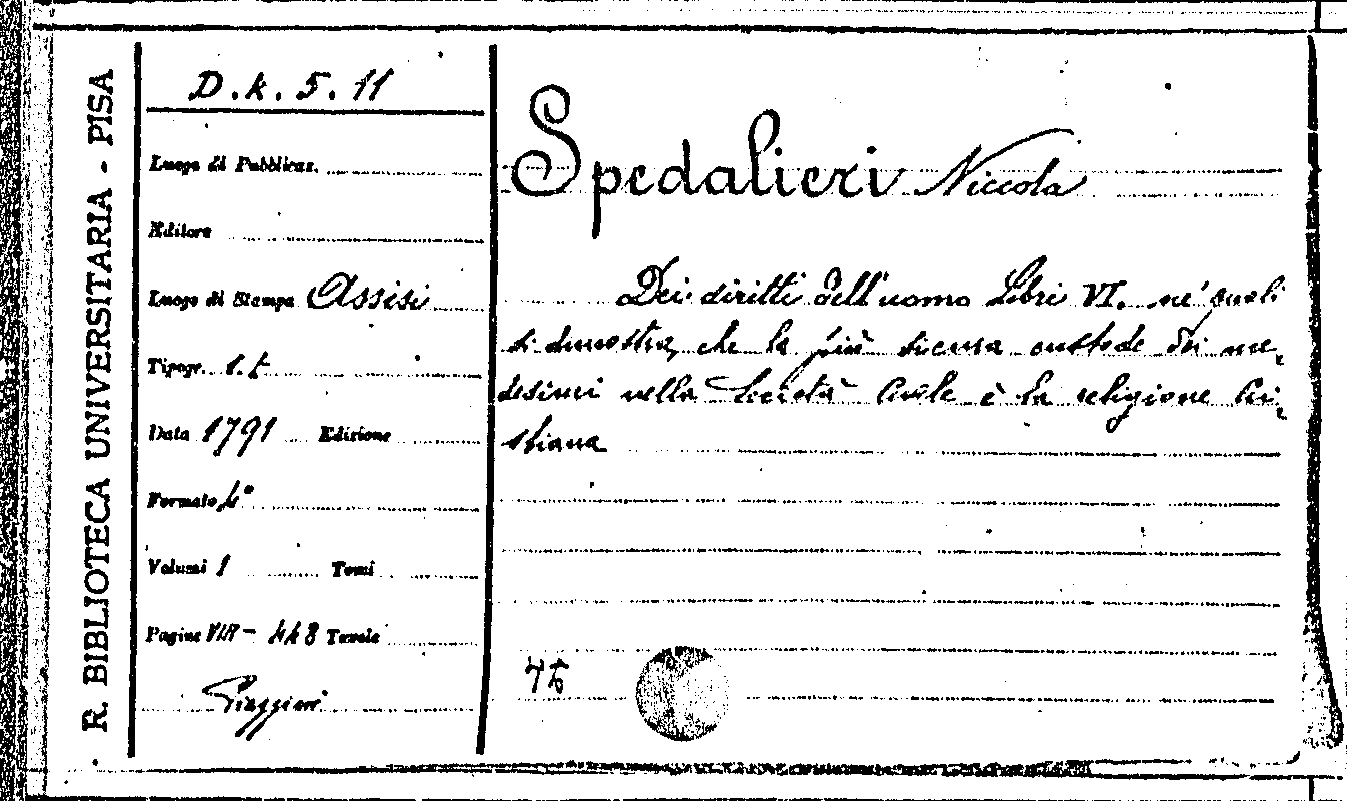 R. BIBLIOTECA UNIVERSITARIA - PISA
D.K.5.11
Luogo di Pubblicaz.
Editore
Luogo di Stampa Assisi
Tipogr. s.t
Data 1791 Edizione
Formato 4°
Volumi 1 Tomi
Pagine VIII - 448 Tavole
Spedalieri Niccola
Dei diritti dell'uomo Libri VI. ne' quali
si dimostra, che la più sicura custode dei me-
desimi nella Società Civile è la religione Cri-
stiana